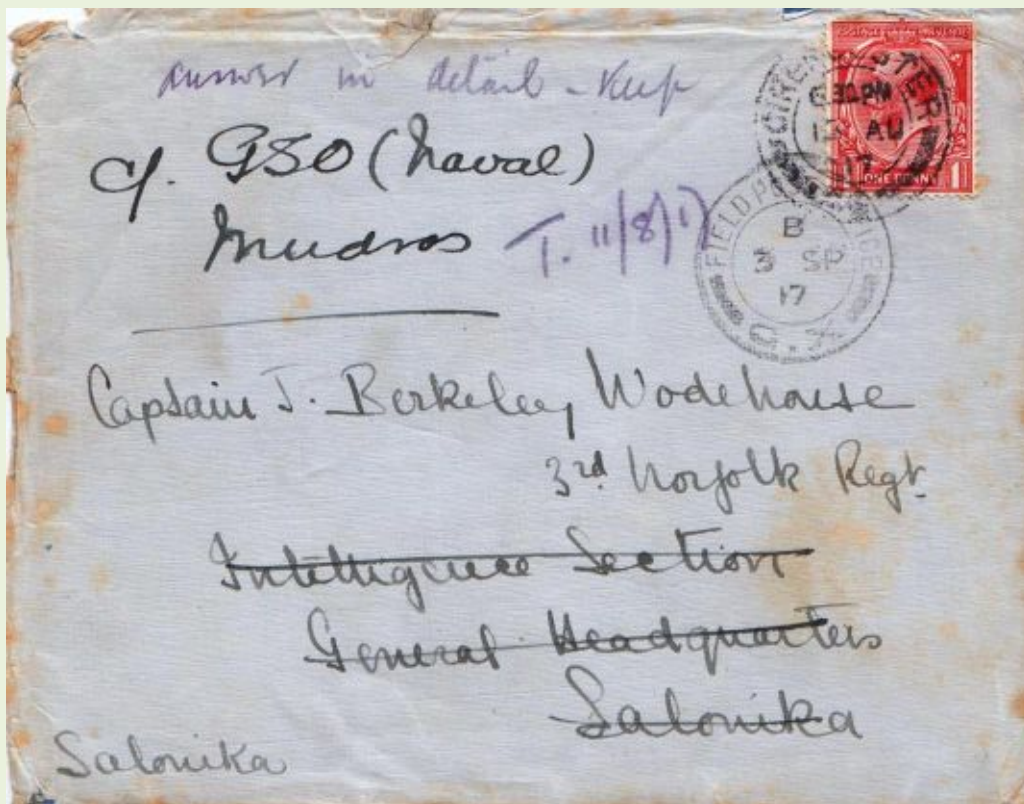 answer in detail - Keep
c/. GSO (Naval)
Mudros
T. 11/8/17
POSTAGE REVENUE
ONE PENNY 1
CIRENCESTER
6.30 PM
AU
17
FIELD POST OFFICE
B
3 SP
17
G.X
Captain J. Berkeley Wodehouse
3rd Norfolk Regt.
Intelligence Section
General Headquarters
Salonika
Salonika